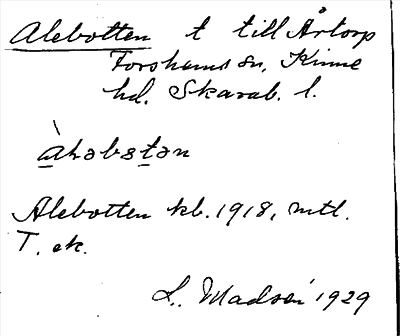 Alebotten t till Årtorp
Forshems sn, Kinne
hd. Skarab. l.
àhəbstən
Alebotten kb. 1918, mtl.
T. ek.
L. Madsén 1929